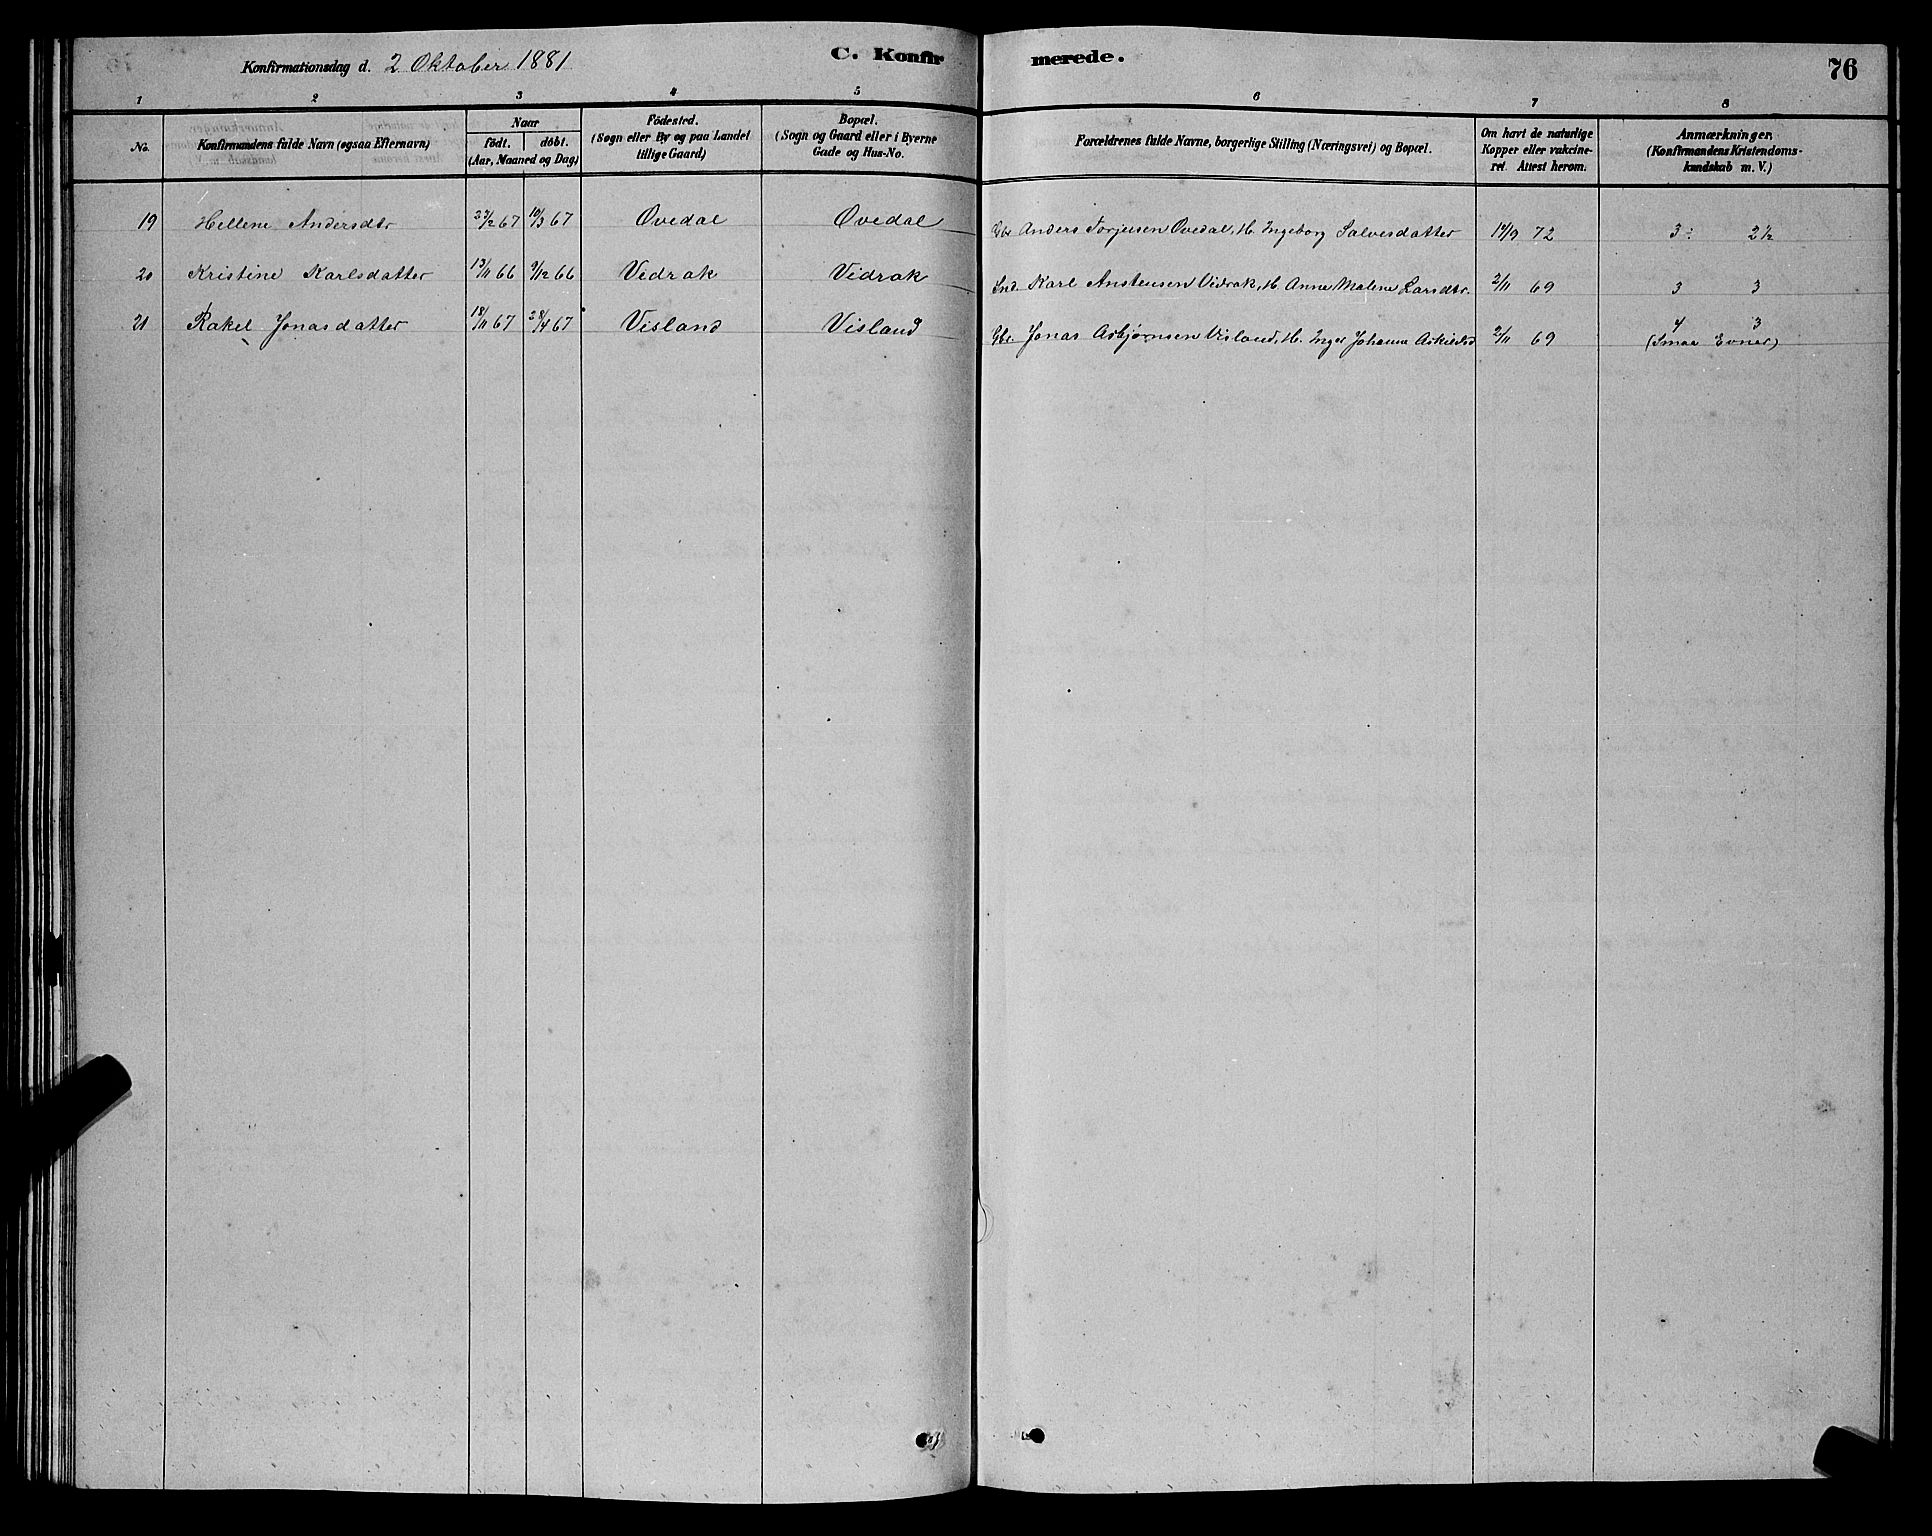 Konfirmationsdag d. 2 Oktober 1881
C. Konfirmerede.
76
1 2 3 4 5 6 7 8
No.
Konfirmandens fulde Navn (ogsaa Efternavn)
Naar
født. døbt.
(Aar, Maaned og Dag)
Fødested.
(Sogn eller By og paa Landet
tillige Gaard)
Bopæl.
(Sogn og Gaard eller i Byerne
Gade og Hus-No.
Forældrenes fulde Navne, borgerlige Stilling (Næringsvei) og Bopæl.
Om havt de naturlige
Kopper eller vakcine-
ret. Attest herom.
Anmærkninger.
(Konfirmandens Kristendoms-
kundskab m. V.)
19 Hellene Andersdtr 67 10/3 67 Øvedal Øvedal Gbr Anders Torjusen Øvedal, H. Ingeborg Salvesdatter 14/9 72 3÷ 2½
20 Kristine Karlsdatter 13/11 66 9/12 66 Vidrak Vidrak Ind. Karl Anstensen Vidrak, H. Anne Malene Larsdtr. 2/11 69 3 3
21 Rakel Jonasdatter 67 28/4 67 Visland Visland Gbr. Jonas Asbjørnsen Visland, H. Inger Johanne Askildsd 2/11 69 4 3
(Smaa Evner)